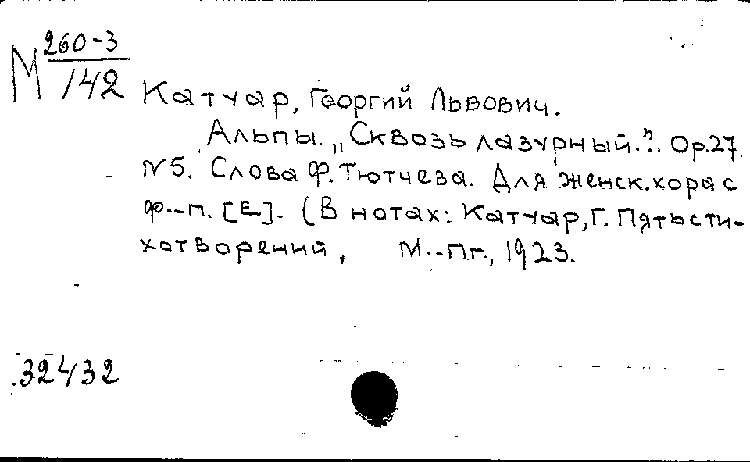 М 260-3
142
Катуар, Георгий Львович.
Альпы. „Сквозь лазурный..". Op.27.
№5. Слова Ф. Тютчева. Для женск. хора с
ф.-п. [E]. (В нотах: Катуар, Г. Пять сти-
хотворений, М.-Пг., 1923.
32432